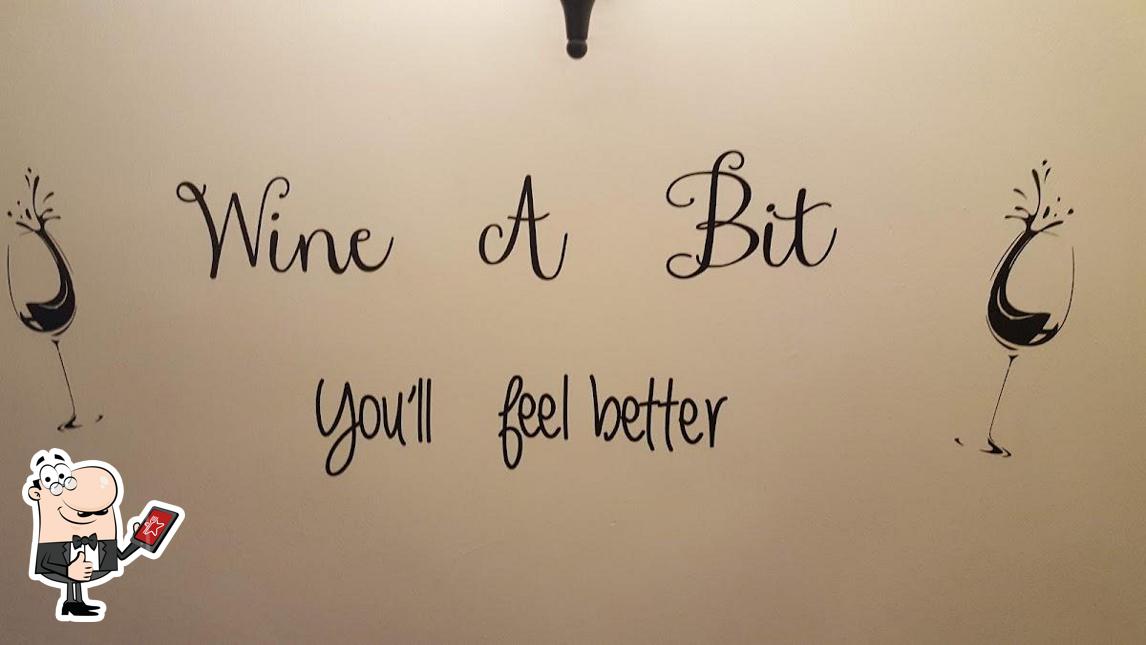 Wine A Bit
you'll feel better